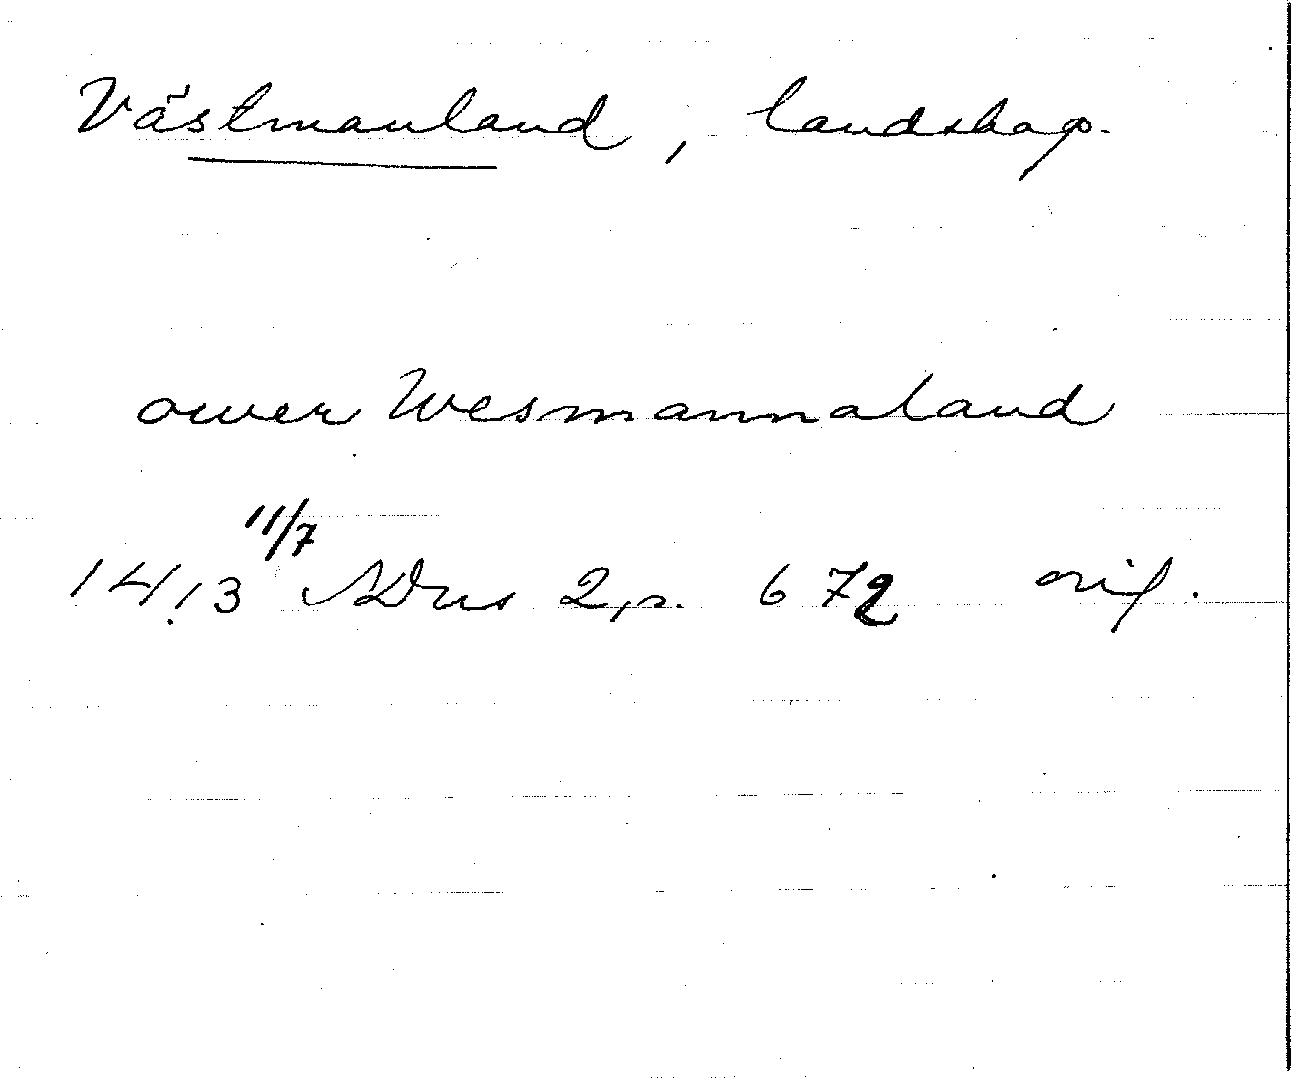 Västmanland, landskap.
ower Wesmannaland
11/7
1413 SDns 2, s. 672 orig.